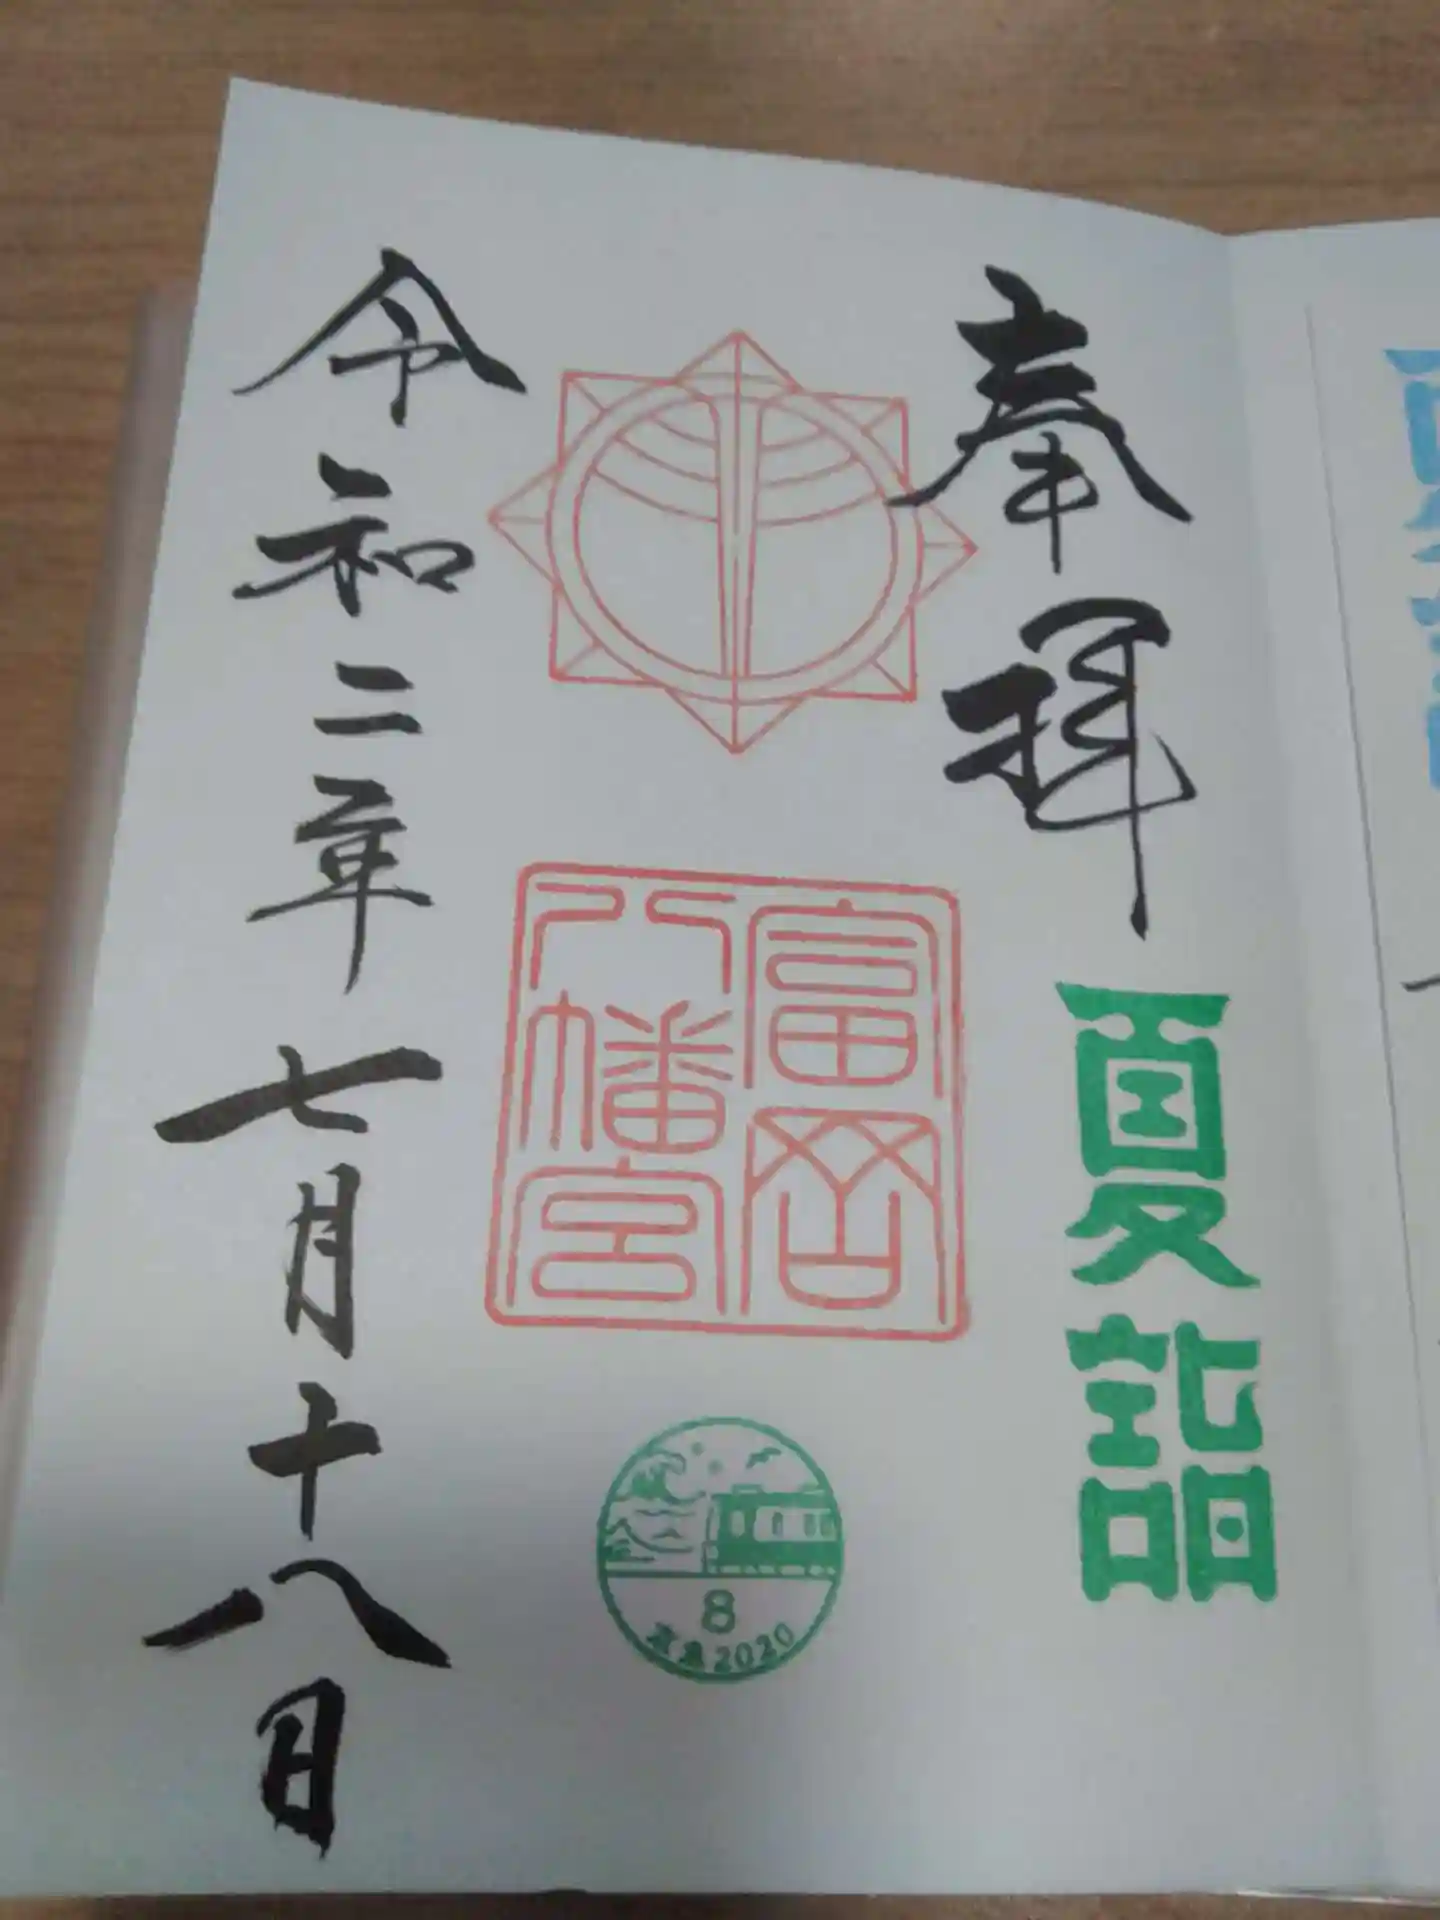 奉拝
夏詣
富岡
八幡宮
8
京急2020
令和二年七月十八日